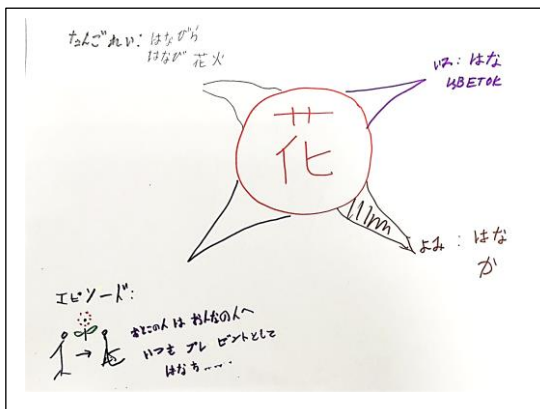 たんごれい：はながら
はなび 花火
いみ：はな
ЦВЕТОК
花
よみ：はな
か
エピソード：
おとこの人は おんなの人へ
いつも プレゼントとして
はなを……